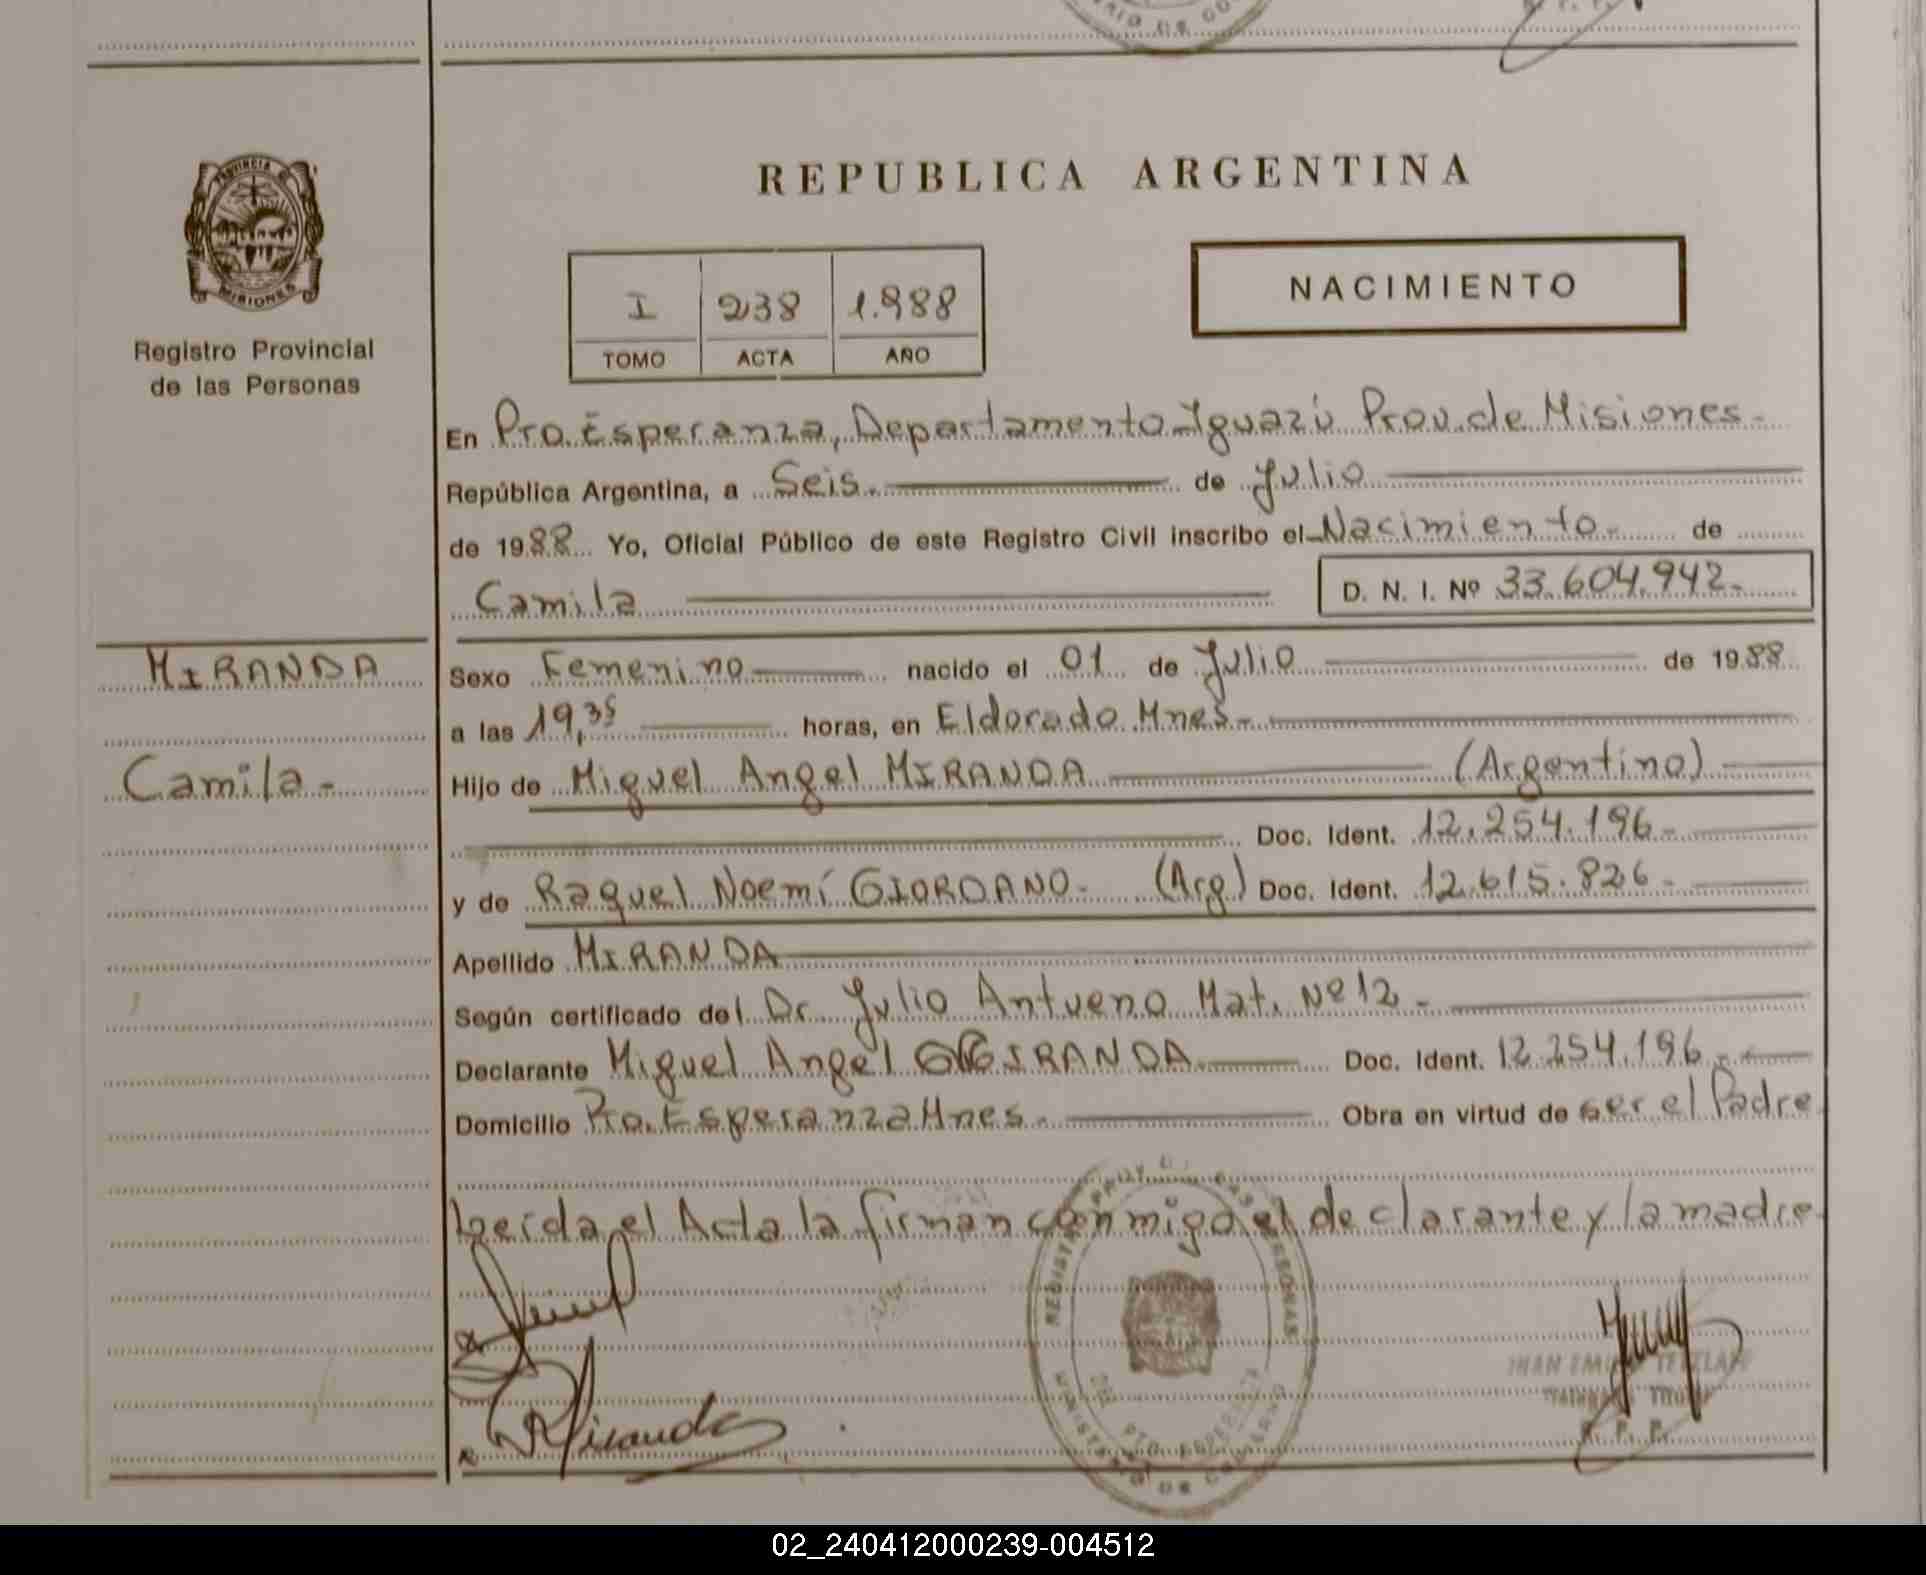 REPUBLICA ARGENTINA
PROVINCIA DE
MISIONES
Registro Provincial
de las Personas
I 238 1.988
TOMO ACTA AÑO
NACIMIENTO
En Pto. Esperanza, Departamento Iguazú Prov. de Misiones.
República Argentina, a Seis. de Julio
de 1988 Yo, Oficial Público de este Registro Civil inscribo el Nacimiento. de
Camila D. N. I. Nº 33.604.942.
MIRANDA
Camila.
Sexo Femenino nacido el 01 de Julio de 1988
a las 19,35 horas, en Eldorado Mnes.
Hijo de Miguel Angel MIRANDA (Argentino)
Doc. Ident. 12.254.196.
y de Raquel Noemí GIORDANO. (Arg) Doc. Ident. 12.615.826.
Apellido MIRANDA
Según certificado del Dr. Julio Antueno Mat. Nº 12.
Declarante Miguel Angel MIRANDA Doc. Ident. 12.254.196.
Domicilio Pto. Esperanza Mnes. Obra en virtud de ser el Padre
Leída el Acta la firman conmigo el declarante y la madre
RMiranda
REGISTRO PROV. DE LAS PERSONAS
MINISTERIO DE GOBIERNO
PTO. ESPERANZA
R. P. P.
02_240412000239-004512